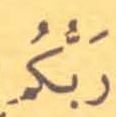 رَبُّكُم